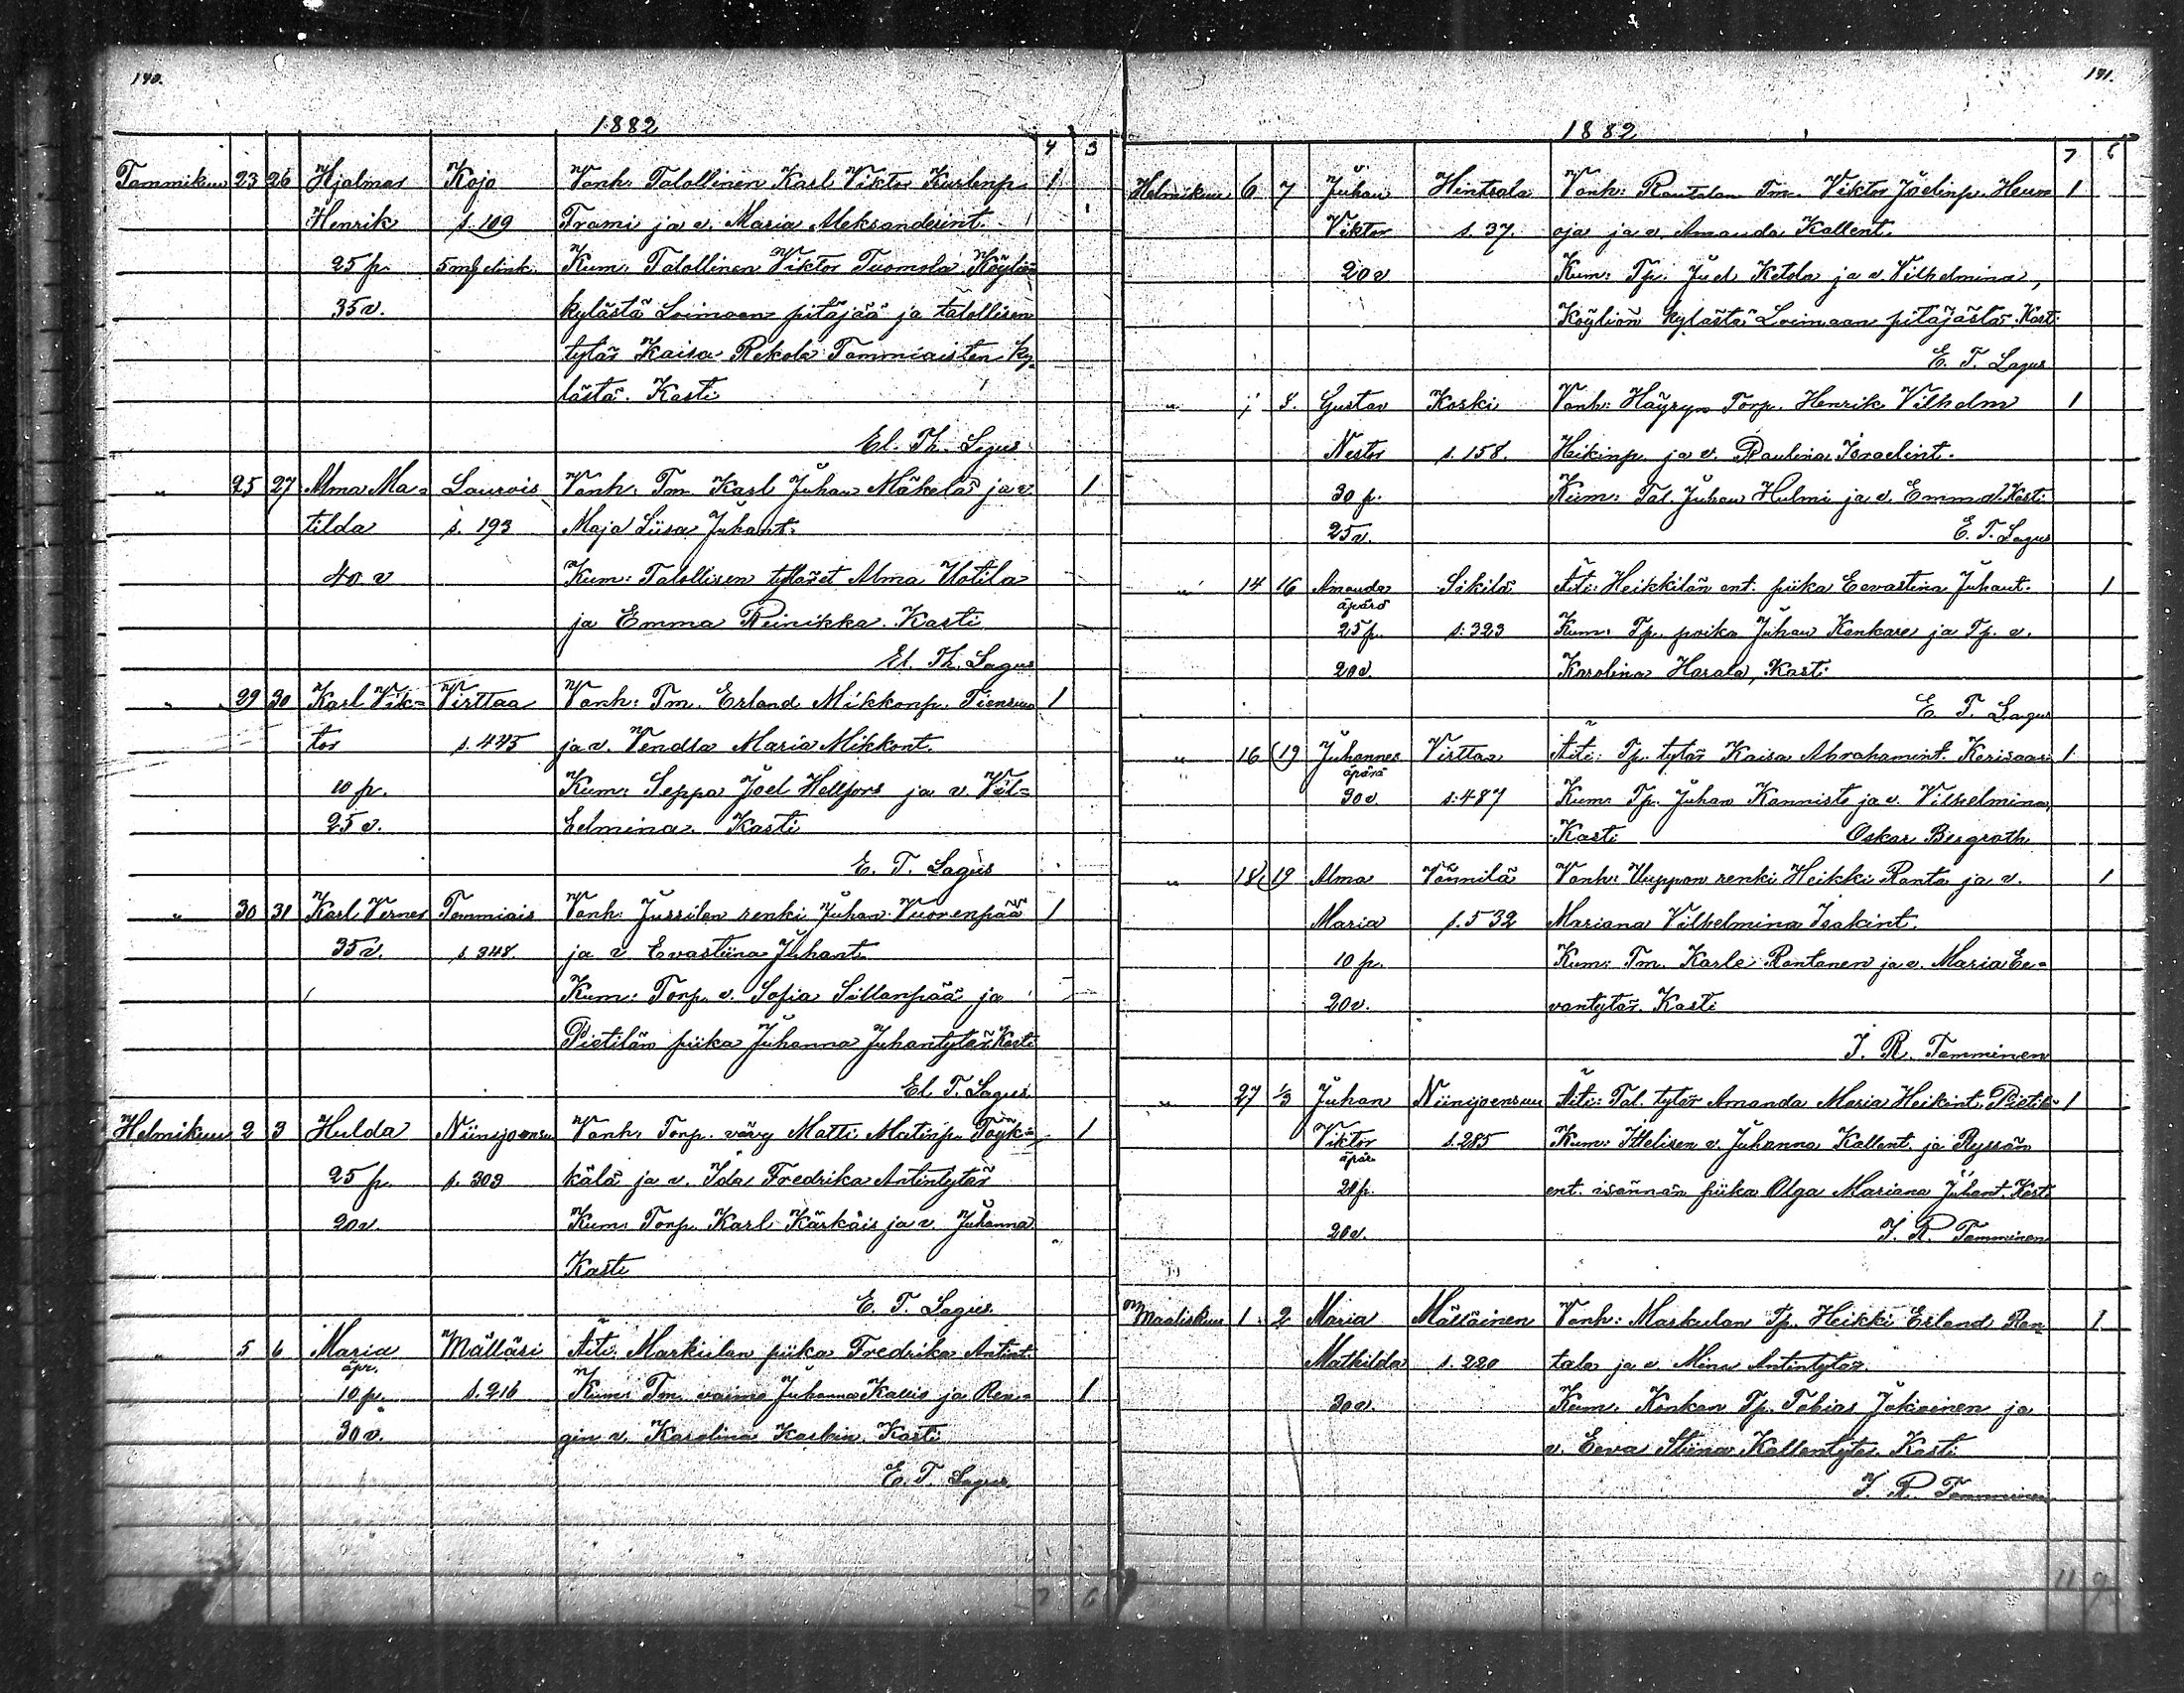 190.
1882
4 3
Tammikuu 23 26 Hjalmar Kojo Vanh: Talollinen Karl Viktor Kustinp. 1
Henrik s. 109 Frami ja v. Maria Aleksanderint.
25 p. Kum: Talollinen Viktor Tuomola Köyliön
35 v. kylästä Loimaan pitäjää ja talollisen
tytär Kaisa Rekola Tammiaisten ky-
lästä. Kasti
El. Th. Lagus
" 25 27 Alma Ma= Laurois Vanh: Tm Karl Juhan Mäkelä ja v. 1
tilda s. 193 Maja Liisa Juhant.
40 v Kum: Talollisen tyttäret Alma Uotila
ja Emma Reinikka. Kasti
El. Th. Lagus
" 29 30 Karl Vik= Virttaa Vanh: Tm. Erland Mikkonp. Tiensuu 1
tor s. 445 ja v. Vendla Maria Mikkont.
10 p. Kum: Seppa Joel Hellfors ja v. Vil=
25 v. helmina. Kasti
E. T. Lagus
" 30 31 Karl Verner Tammiais Vanh: Jussilan renki Juhan Vuorenpää 1
35 v. s 348. ja v Evastiina Juhant.
Kum: Torp. v. Sofia Sillanpää ja
Pietilän piika Juhanna Juhantytär. Kasti
El. T. Lagus
Helmikuu 2 3 Hulda Niinijoensu Vanh: Torp. vävy Matti Matinp. Töyk= 1
25 p. s. 303 kälä ja v. Ida Fredrika Antintytär
20 v. Kum: Torp. Karl Kärkäis ja v. Juhanna
Kasti
E. T. Lagus.
" 5 6 Maria Mälläsi Äiti: Markulan piika Fredrika Antint.
äpr.
10 p. s. 216 Kum: Tm. vaimo Juhanna Kallis ja Ren= 1
30 v. gin v. Karolina Kaskin. Kasti
E. T. Lagus
7 6
191.
1882
7 6
Helmikuu 6 7 Juhan Hintsala Vanh: Rantalan Tm. Viktor Joelinp. Heun 1
Viktor s. 37. oja ja v. Amanda Kallent.
20 v Kum: Tp. Juel Ketola ja v. Vilhelmina,
Köyliön kylästä Loimaan pitäjästä. Kast.
E. T. Lagus
" 7 8. Gustav Koski Vanh: Häyryn Torp. Henrik Vilhelm 1
Nestor s. 158. Heikinp. ja v. Paulina Israelint.
30 p. Kum: Tal. Juhan Hulmi ja v. Emma. Kasti
25 v. E. T. Lagus
" 14 16 Amanda Sikilä Äiti: Heikkilän ent. piika Eevastina Juhant. 1
äpärä
25 p. s. 323 Kum: Tp. poika Juhan Kankare ja Tp. v.
20 v. Karolina Harala, Kasti
E. T. Lagus
" 16 19 Juhannes Virttaa Äiti: Tp. tytär Kaisa Abrahamint. Kerisaari 1
äpärä
30 v. s. 487 Kum: Tp. Juhan Kannisto ja v. Vilhelmina,
Kasti Oskar Bergroth
" 18 19 Alma Vännilä Vanh: Uuppan renki Heikki Ranta ja v. 1
Maria s. 532 Mariana Vilhelmina Isakint.
10 p. Kum: Tm. Karle Rantanen ja v. Maria Ee=
20 v. vantytär. Kasti
J. R. Tamminen
" 27 1/3 Juhan Niinijoensuu Äiti: Tal. tytär Amanda Maria Heikint. Pietilä 1
Viktor s. 285 Kum: Itselisen v. Juhanna Kallent. ja Ryssän
äpär.
20 p. ent. isännän piika Olga Mariana Juhant. Kasti
20 v. J. R. Tamminen
Maaliskuu 1 2 Maria Mälläinen Vanh: Markulan Tp. Heikki Erland Ran 1
Mathilda s. 220 tala ja v. Mina Antintytär.
30 v. Kum: Konkan Tp. Tobias Jokainen ja
v. Eeva Stiina Kallentytär. Kasti
J. R. Tamminen
11 9